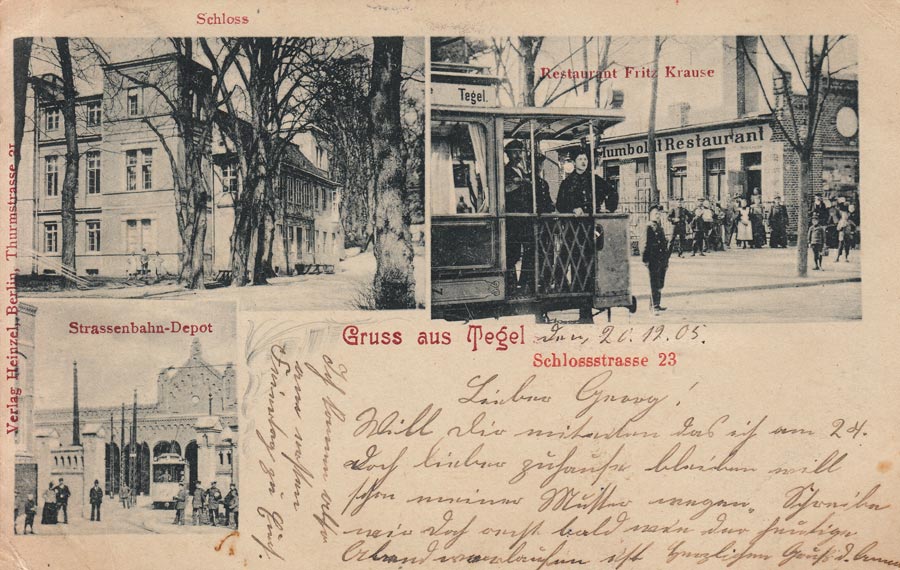 Schloss
Restaurant Fritz Krause
Tegel.
Humboldt Restaurant
Verlag Heinzel, Berlin, Thurmstrasse 21
Strassenbahn-Depot
Gruss aus Tegel
den, 20.12.05.
Schlossstrasse 23
Lieber Georg!
Will Dir mitteilen das ich am 24.
doch lieber zuhause bleiben will
schon meiner Mutter wegen. Schreibe
mir doch recht bald wie der heutige
Abend verlaufen ist Herzlichen Gruß d.
Ich komme
am
zu Euch.